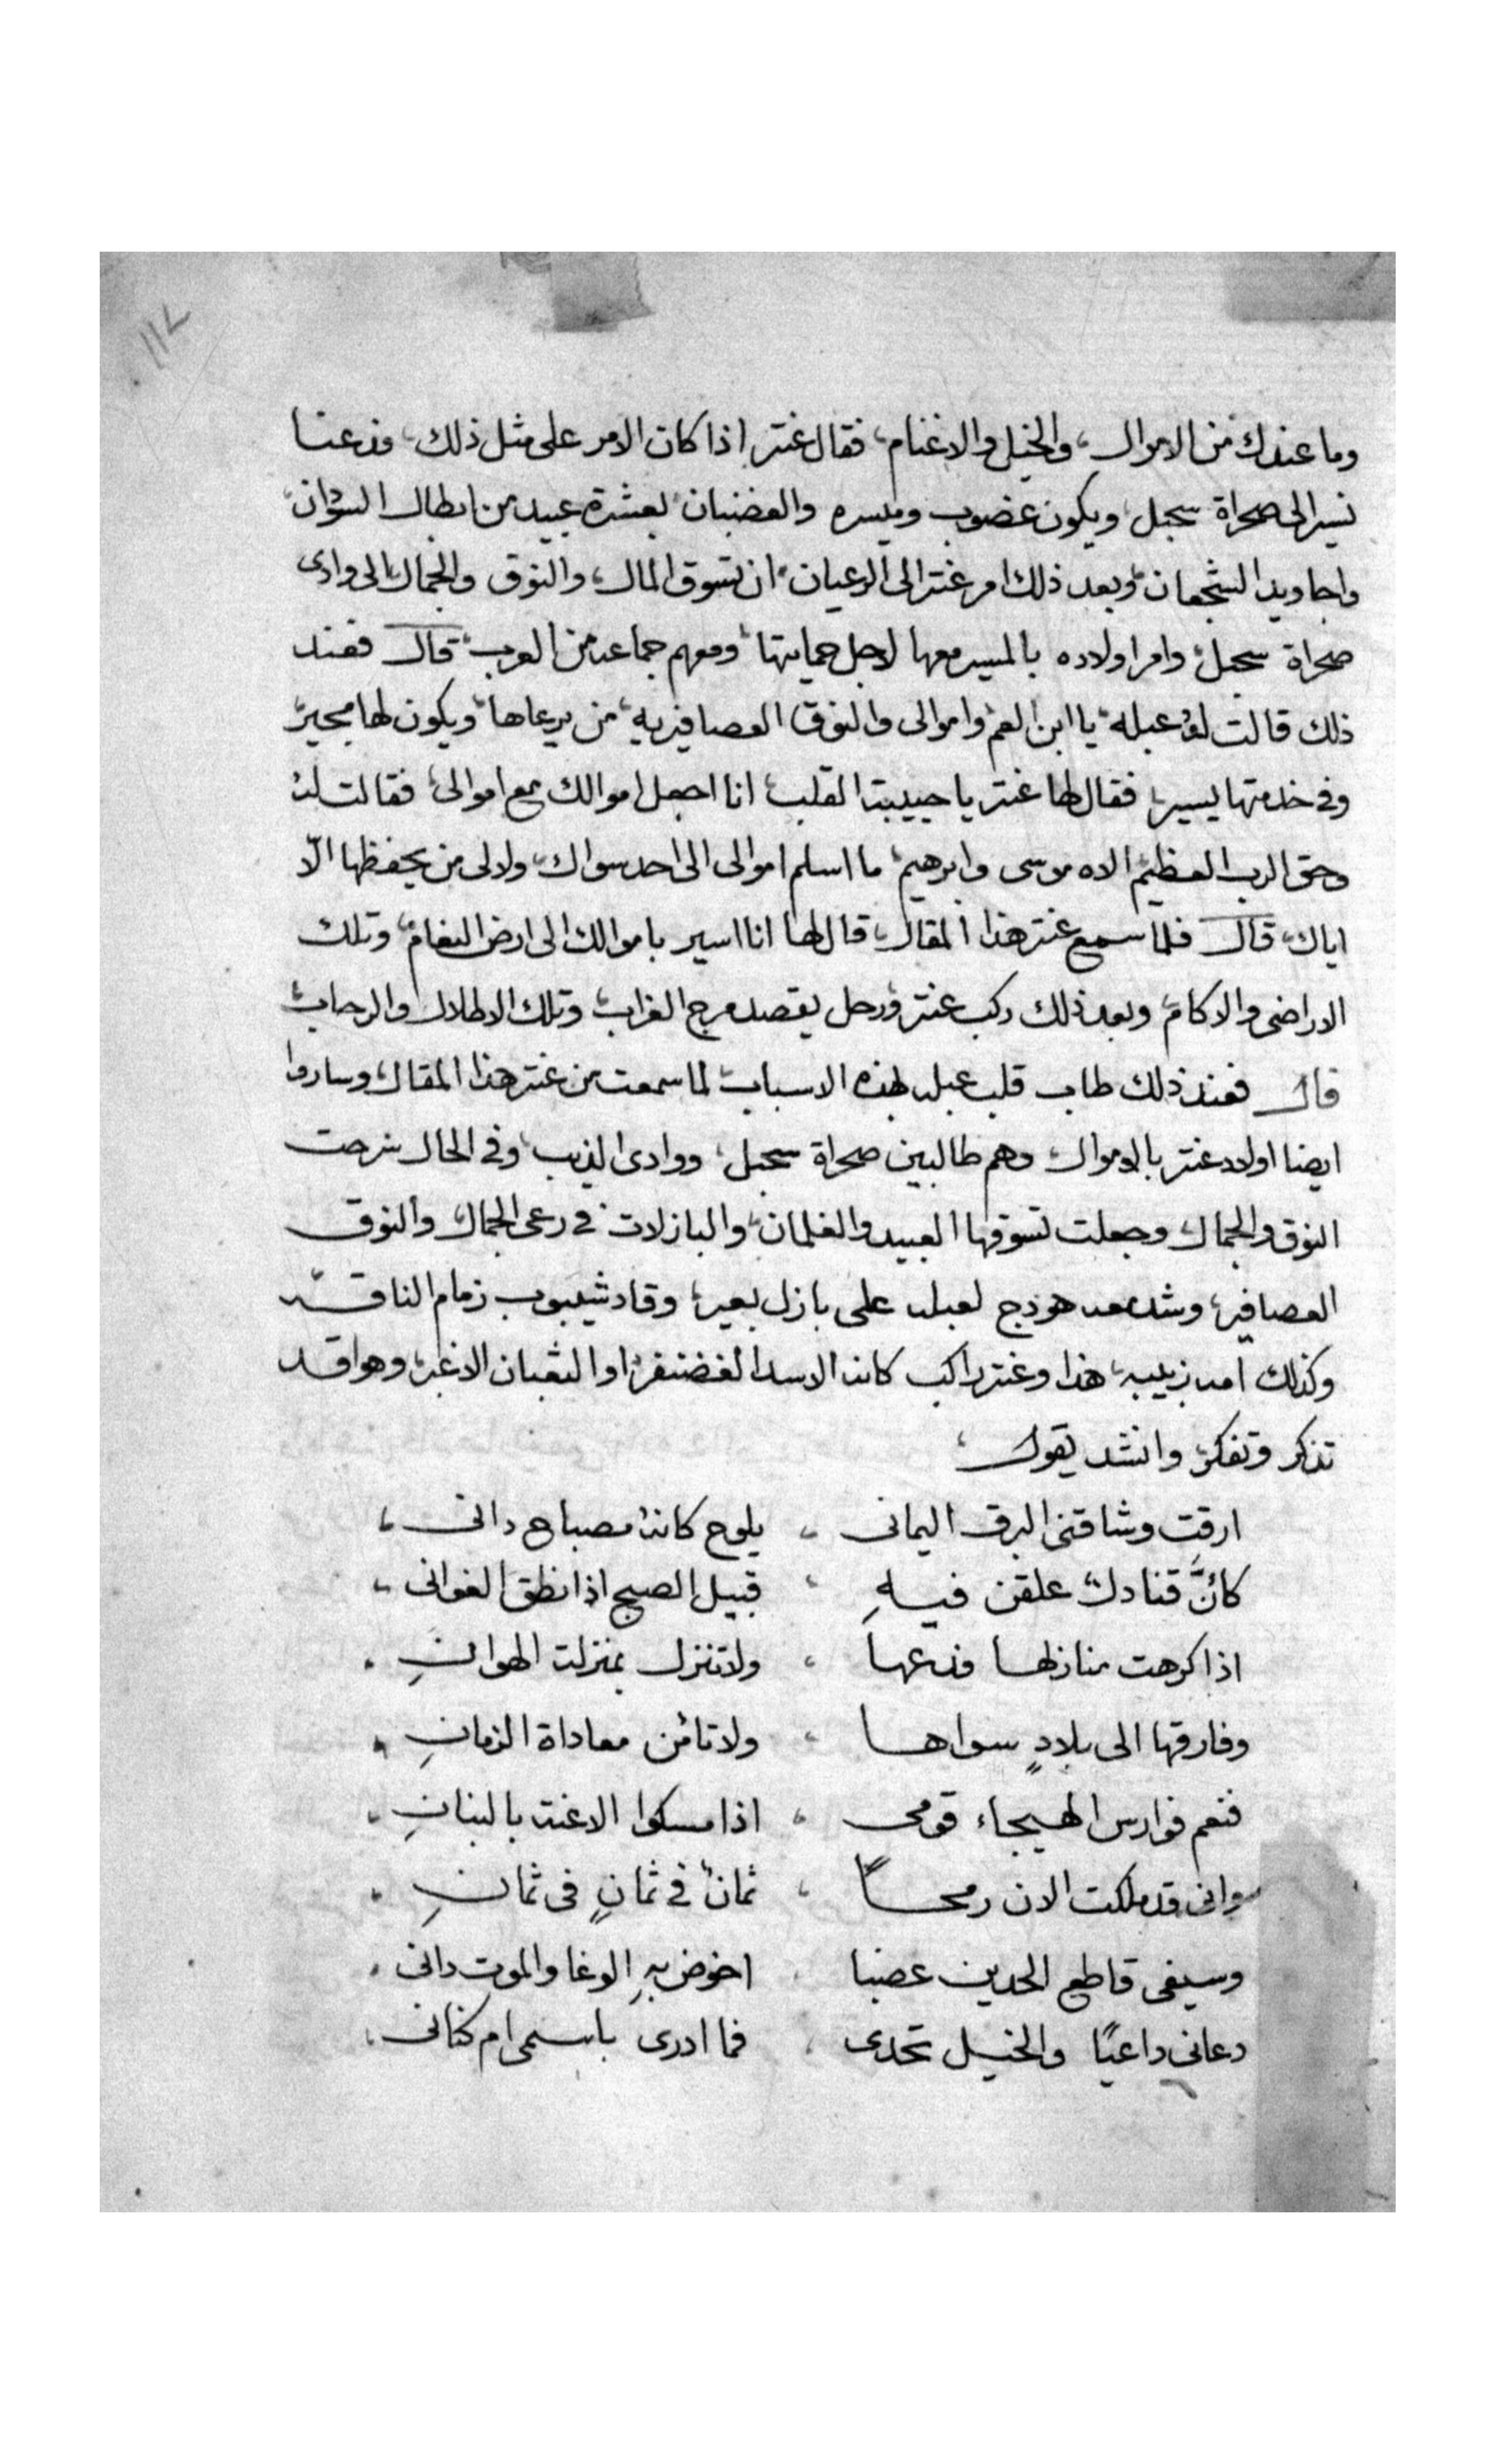 ١١٢
وما عندك من الاموال، والخيل والاغنام، فقال عنتر اذا كان الامر على مثل ذلك، فدعنا
نسير الى صحراة سجبل، ويكون غضوب وميسره والغضبان، بعشرة عبيد من ابطال السودان،
واجاويد الشجعان، وبعد ذلك امر عنتر الى الرعيان، ان تسوق المال، والنوق والجمال، الى وادى
صحراة سجبل، وامر اولاده بالمسير معها لاجل حمايتها، ومعهم جماعه من العرب، قال فعند
ذلك قالت له عبله، يا ابن العم واموالى والنوق العصافيريه، من يرعاها، ويكون لها مجير،
وفى خدمتها يسير، فقال لها عنتر يا حبيبة القلب، انا اجعل اموالك مع اموالى، فقالت له
وحق الرب العظيم الاه موسى وابرهيم، ما اسلم اموالى الى احد سواك، ولا لى من يحفظها الّا
اياك، قال فلما سمع عنتر هذا المقال، قال لها انا اسير باموالك الى ارض النعام، وتلك
الاراضى والاكام، وبعد ذلك ركب عنتر ورحل يقصد مرج الغراب، وتلك الاطلال والرحاب،
قال فعند ذلك طاب قلب عبله لهذه الاسباب، لما سمعت من عنتر هذا المقال، وساروا
ايضا اولاد عنتر بالاموال، وهم طالبين صحراة سجبل، ووادى الذيب، وفى الحال سرحت
النوق والجمال، وجعلت تسوقها العبيد والغلمان، والبازلات فى رعى الجمال، والنوق
العصافير، وشد هودج لعبله على بازل بعير، وقاد شيبوب زمام الناقه
وكذلك امه زبيبه، هذا وعنتر راكب كانه الاسد الغضنفر، او الثعبان الاغبر، وهو اقد
تذكر وتفكر، وانشد يقول،
ارقت وشاقنى البرق اليمانى ، يلوح كانه مصباح دانى ،
كانَّ قنادل، علقن فيهِ ، قبيل الصبح اذا نطق الغوانى ،
اذا كرهت منازلها فدعها ، ولا تنزل بمنزلة الهوانِ .
وفارقها الى بلادٍ سواها ، ولا تامن معاداة الزمانِ .
فنعم فوارس الهيجاء قومى ، اذا مسكوا الاعنة بالبنانِ .
وانى قد ملكت الان رمحاً ، ثمانٌ فى ثمانٍ فى ثمانِ .
وسيفى قاطع الحدين عضبا ، اخوض بهِ الوغا والموت دانى .
دعانى داعيًا والخيل تحدى ، فما ادرى باسمى ام كنانى .